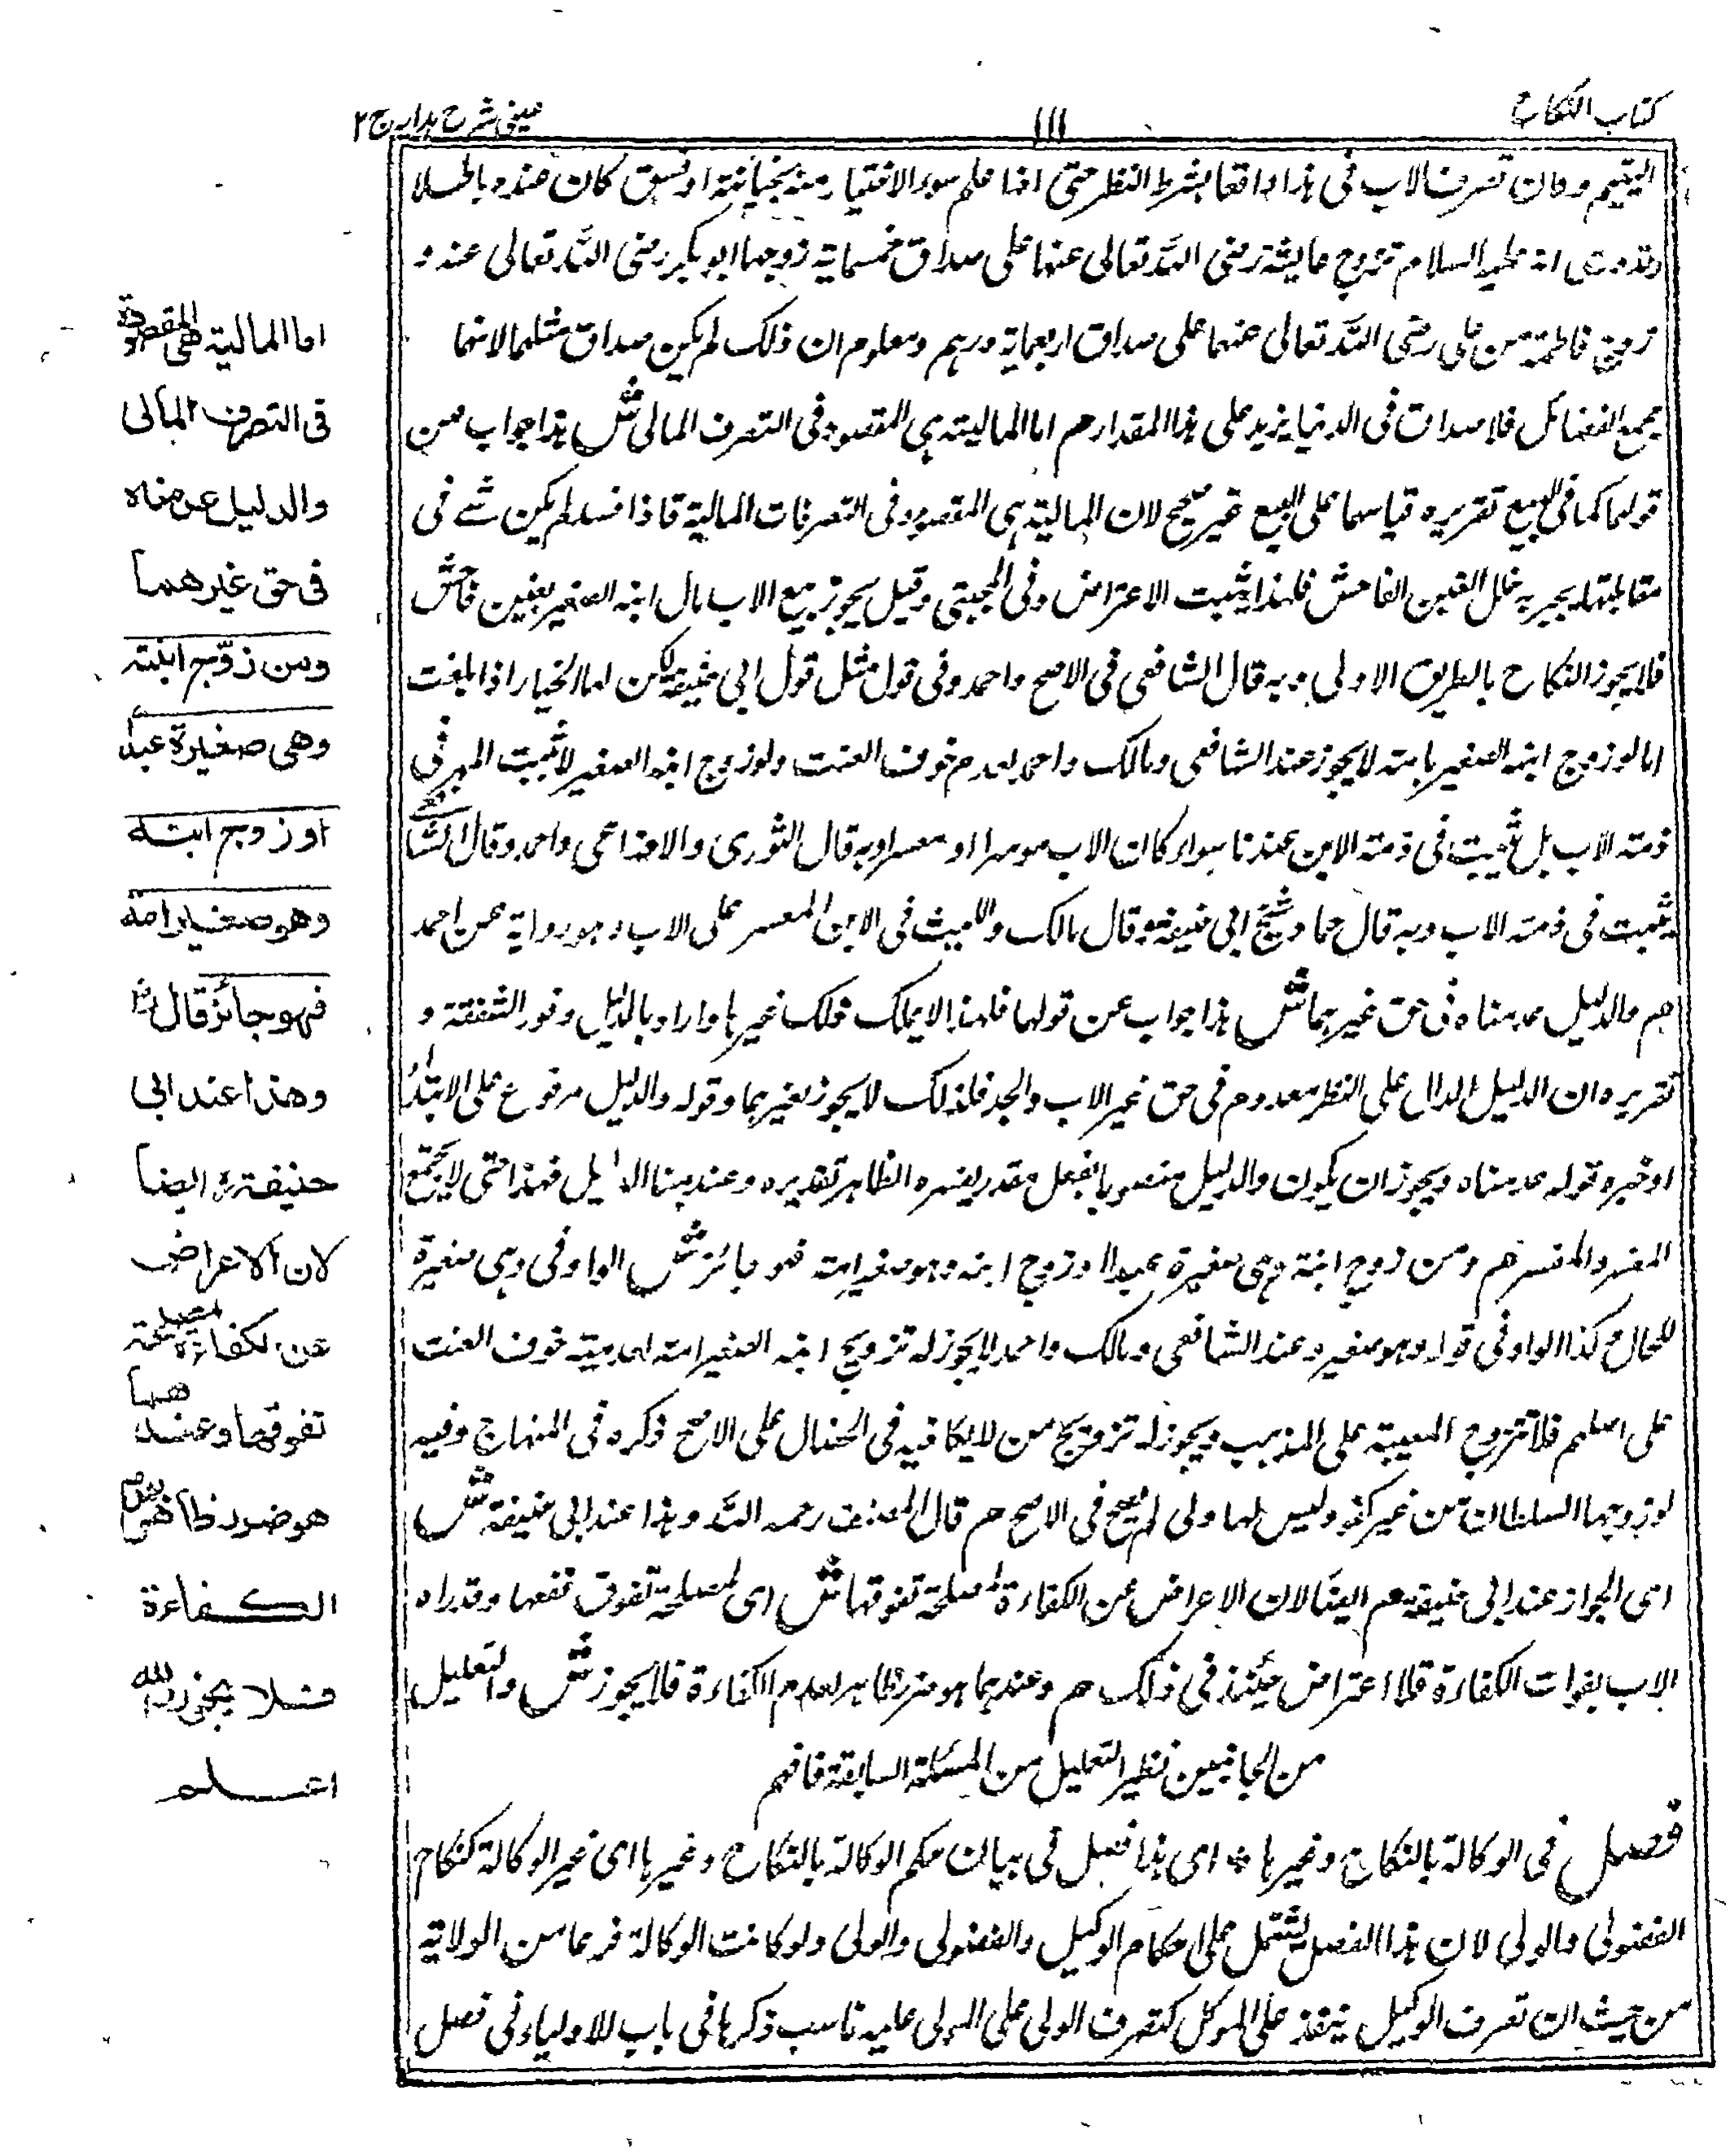 كتاب النكاح
١١١
عینی شرح ہدایہ ج ٢
اليتيم وكان تصرف الاب فى هذا واقعا بشرط النظر حتى اذا علم سوء الاختيار منه بخيانته او فسق كان عنده باطلا
وقد روى انه عليه السلام تزوج عايشة رضى الله تعالى عنها على صداق خمسماية زوجها ابو بكر رضى الله تعالى عنه و
زوج فاطمة من على رضى الله تعالى عنهما على صداق اربعماية درهم ومعلوم ان ذلك لم يكن صداق مثلهما لانهما
مجمع الفضائل فلا صداق فى الدنيا يزيد على هذا المقدار م اما المالية هى المقصود فى التصرف المالى ش هذا جواب عن
قولهما كما فى البيع تقريره قياسهما على البيع غير صحيح لان المالية هى المقصود فى التصرفات المالية فاذا فسد لم يكن شے فى
مقابلتها يجبر به خلل الغبن الفاحش فلهذا يثبت الاعتراض وفى المجتبى وقيل يجوز بيع الاب مال ابنه الصغير بغبن فاحش
فلا يجوز النكاح بالطريق الاولى وبه قال الشافعى فى الاصح واحمد وفى قول مثل قول ابى حنيفة لكن لها الخيار اذا بلغت
اما لو زوج ابنه الصغير بامته لا يجوز عند الشافعى ومالك واحمد لعدم خوف العنت ولو زوج ابنه الصغير لا يثبت المهر فى
ذمته الاب بل يثبت فى ذمته الابن عندنا سواء كان الاب موسرا او معسرا وبه قال الثورى والاوزاعى واحمد وقال الشافعے
يثبت فى ذمته الاب وبه قال حماد شيخ ابى حنيفة وقال مالك والليث فى الابن المعسر على الاب وهو رواية عن احمد
م والدليل عدمناه فى حق غيرهما ش هذا جواب عن قولهما فلهذا لا يملك ذلك غيرهما واراد بالدليل وفور الشفقة و
تقريره ان الدليل الدال على النظر معدوم فى حق غير الاب والجد فلذلك لا يجوز لغيرهما وقوله والدليل مرفوع على الابتداء
او خبره قوله عدمناه ويجوز ان يكون والدليل منصوبا بفعل مقدر يفسره الظاهر تقديره وعدمنا الدليل فهذا حتى لا يجتمع
المفسر والمفسر م ومن زوج ابنته وهى صغيرة عبدا او زوج ابنه وهو صغير امة فهو جائز ش الواو فى وهى صغيرة
للحال وكذا الواو فى قوله وهو صغير وعند الشافعى ومالك واحمد لا يجوز له تزويج ابنه الصغير امته لعدمية خوف العنت
على اصلهم فلا تتزوج المعيبة على المذهب ويجوز له تزويج من لا يكافيه فى الخصال على الاصح ذكره فى المنهاج وفيه
لو زوجها السلطان من غير كفو وليس لها ولى لم يصح فى الاصح م قال المصنف رحمه الله وهذا عند ابى حنيفة ش
اى الجواز عند ابى حنيفة م ايضا لان الاعراض عن الكفاءة لمصلحة تفوقها ش اى لمصلحة تفوق نفعها وقد راه
الاب بفوات الكفاءة فلا اعتراض حينئذ فى ذلك م وعندهما هو ضرر ظاهر لعدم الكفاءة فلا يجوز ش والتعليل
من الجانبين نظير التعليل من المسئلة السابقة فافهم
فصل فى الوكالة بالنكاح وغيرها * اى هذا فصل فى بيان حكم الوكالة بالنكاح وغيرها اى غير الوكالة كنكاح
الفضولى والولى لان هذا الفصل يشتمل على احكام الوكيل والفضولى والولى ولو كانت الوكالة فرعا من الولاية
من حيث ان تصرف الوكيل ينفذ على الموكل كتصرف الولى على المولى عليه ناسب ذكرها فى باب الاولياء فى فصل
اما المالية هى المقصودة
فى التصرف المالى
والدليل عدمناه
فى حق غيرهما
ومن زوّج ابنته
وهى صغيرة عبدا
او زوج ابنه
وهو صغير امة
فهو جائز قال رض
وهذا عند ابى
حنيفة رح ايضا
لان الاعراض
عن الكفاءة لمصلحة
تفوقها وعندهما
هو ضرر ظاهر لعدم
الكفاءة
فلا يجوز والله
اعلم